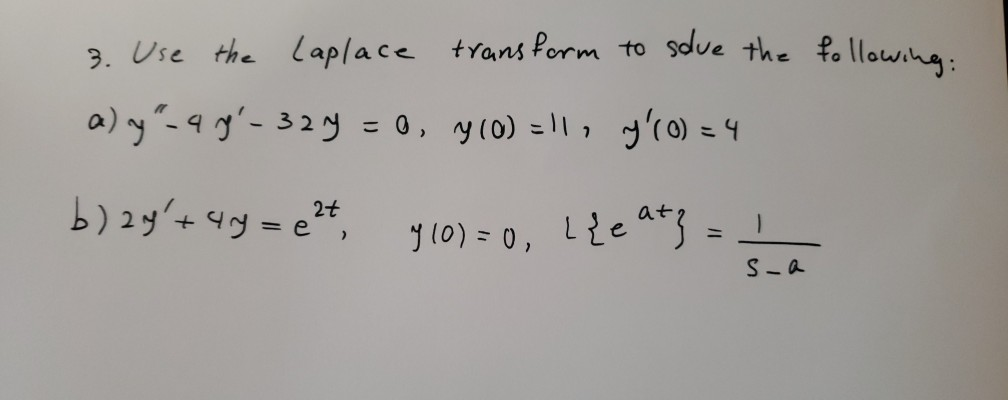 3. Use the Laplace transform to solve the following:
a) y" - 4y' - 32y = 0, y(0) = 11, y'(0) = 4
b) 2y' + 4y = e^{2t}, y(0) = 0, L{e^{at}} = 1/(s-a)